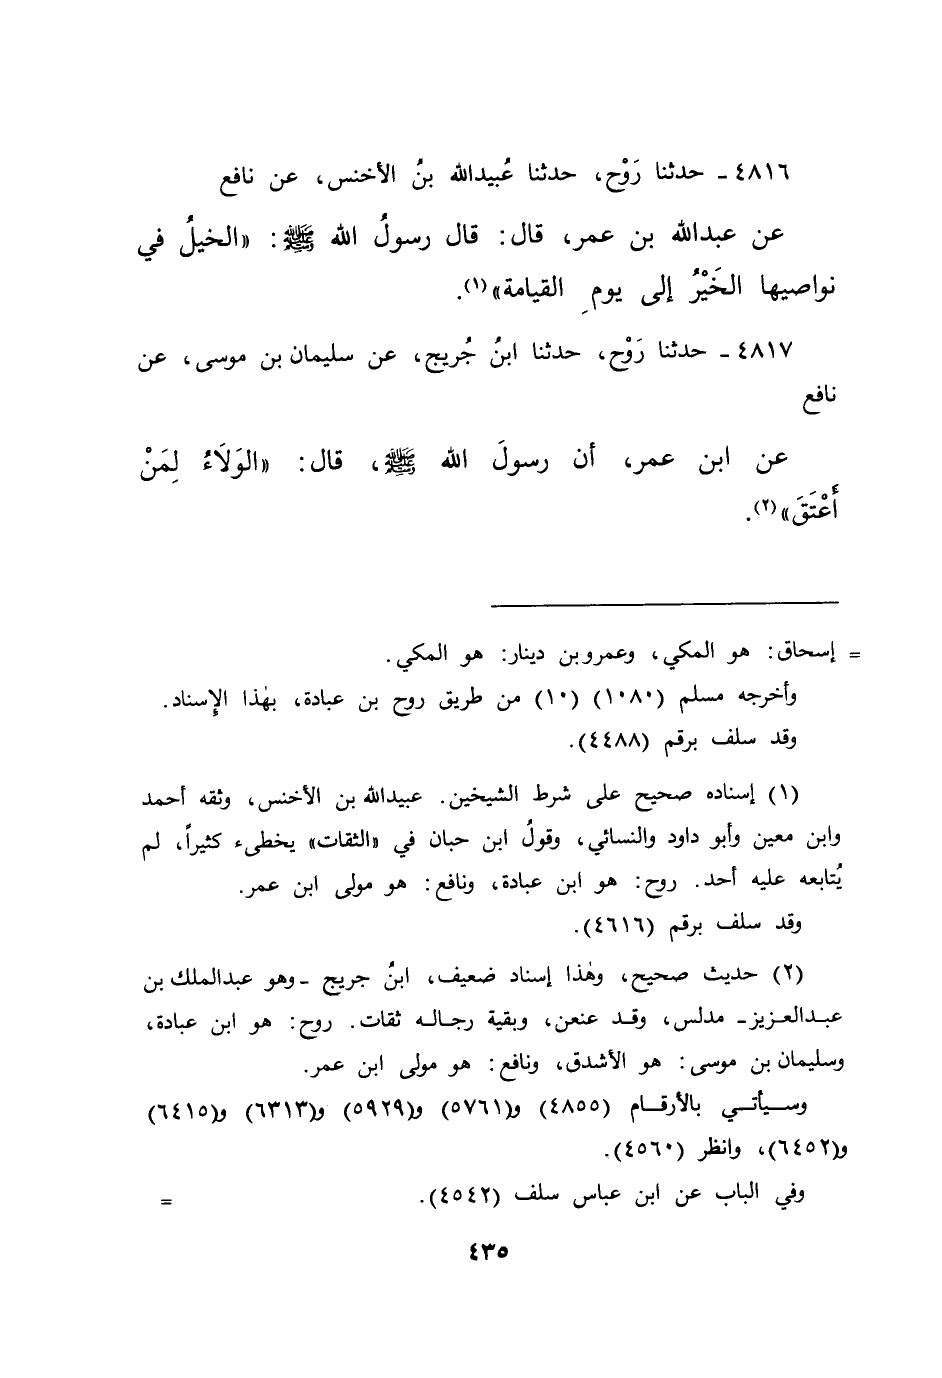 ٤٨١٦ ـ حدثنا رَوْح، حدثنا عُبيدالله بنُ الأخنس، عن نافع
عن عبدالله بن عمر، قال: قال رسولُ الله ﷺ: «الخيلُ في
نواصيها الخَيْرُ إلى يومِ القيامة»(١).
٤٨١٧ ـ حدثنا رَوْح، حدثنا ابنُ جُريج، عن سليمان بن موسى، عن
نافع
عن ابن عمر، أن رسولَ الله ﷺ، قال: «الوَلَاءُ لِمَنْ
أَعْتَقَ»(٢).
= إسحاق: هو المكي، وعمرو بن دينار: هو المكي.
وأخرجه مسلم (١٠٨٠) (١٠) من طريق روح بن عبادة، بهٰذا الإِسناد.
وقد سلف برقم (٤٤٨٨).
(١) إسناده صحيح على شرط الشيخين. عبيدالله بن الأخنس، وثقه أحمد
وابن معين وأبو داود والنسائي، وقولُ ابن حبان في «الثقات» يخطىء كثيراً، لم
يُتابعه عليه أحد. روح: هو ابن عبادة، ونافع: هو مولى ابن عمر.
وقد سلف برقم (٤٦١٦).
(٢) حديث صحيح، وهٰذا إسناد ضعيف، ابنُ جريج ـ وهو عبدالملك بن
عبدالعزيز ـ مدلس، وقد عنعن، وبقية رجاله ثقات. روح: هو ابن عبادة،
وسليمان بن موسى: هو الأشدق، ونافع: هو مولى ابن عمر.
وسيأتي بالأرقام (٤٨٥٥) و(٥٧٦١) و(٥٩٢٩) و(٦٣١٣) و(٦٤١٥)
و(٦٤٥٢)، وانظر (٤٥٦٠).
وفي الباب عن ابن عباس سلف (٤٥٤٢). =
٤٣٥